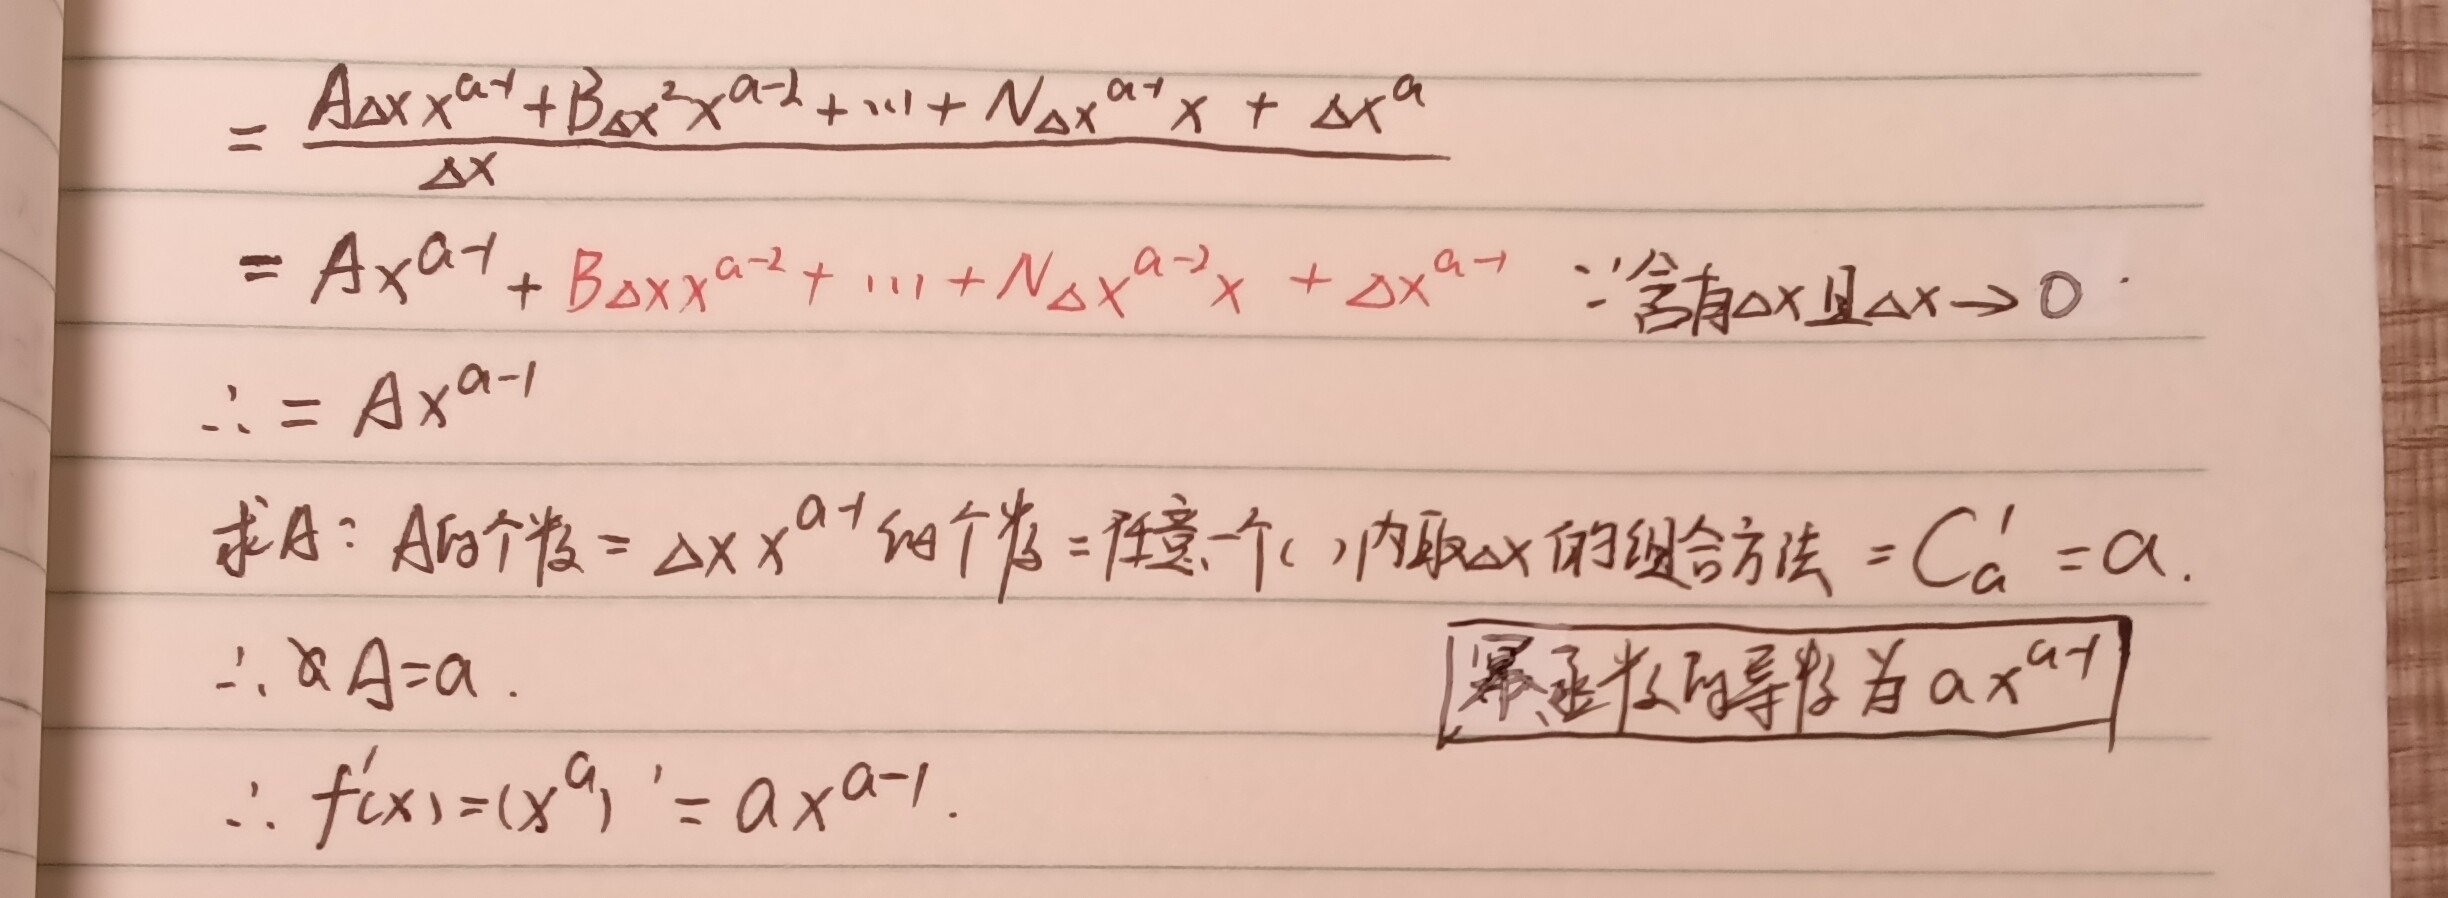 = (A△x x^(a-1) + B△x² x^(a-2) + ... + N△x^(a-1) x + △x^a) / △x
= Ax^(a-1) + B△x x^(a-2) + ... + N△x^(a-2) x + △x^(a-1) ∵含有△x且△x→0.
∴ = Ax^(a-1)
求A: A的个数 = △x x^(a-1) 的个数 = 任意一个( )内取△x的组合方法 = C_a^1 = a.
∴ A=a.
幂函数的导数为 ax^(a-1)
∴ f'(x) = (x^a)' = ax^(a-1).